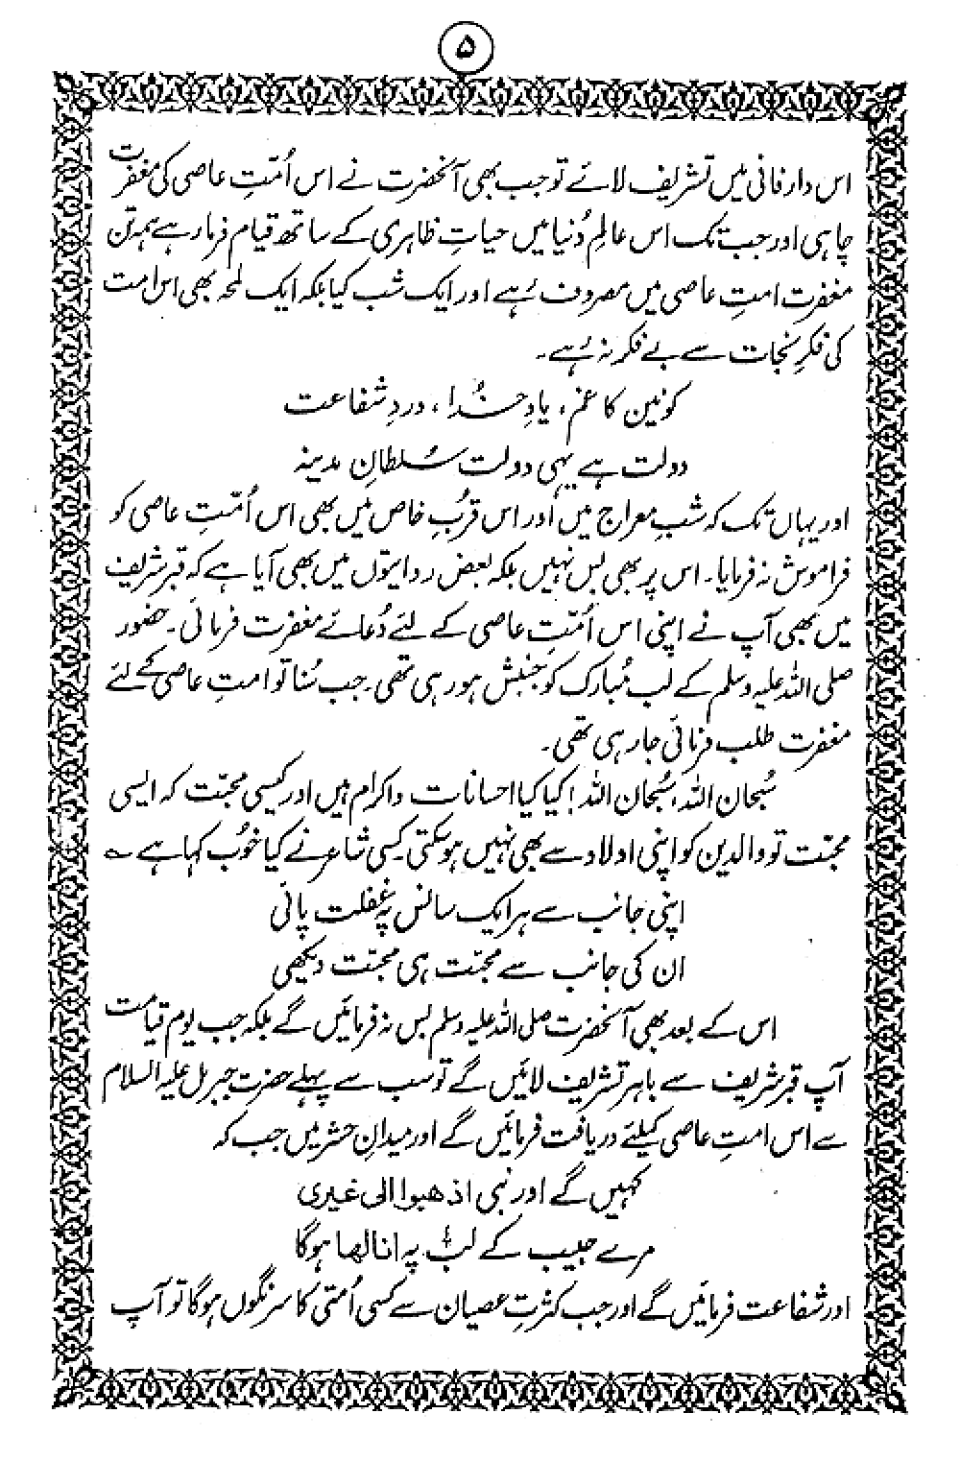 ۵
اس دار فانی میں تشریف لائے تو جب بھی آنحضرت نے اس اُمّتِ عاصی کی مغفرت
چاہی اور جب تک اس عالمِ دُنیا میں حیاتِ ظاہری کے ساتھ قیام فرما رہے ہمہ تن
مغفرت امتِ عاصی میں مصروف رہے اور ایک شب کیا بلکہ ایک لمحہ بھی اس امت
کی فکرِ نجات سے بے فکر نہ رہے۔
کونین کا غم، یادِ خدا، دردِ شفاعت
دولت ہے یہی دولت سُلطانِ مدینہ
اور یہاں تک کہ شبِ معراج میں اور اس قُربِ خاص میں بھی اس اُمّتِ عاصی کو
فراموش نہ فرمایا۔ اس پر بھی بس نہیں بلکہ بعض روایتوں میں بھی آیا ہے کہ قبر شریف
میں بھی آپ نے اپنی اس اُمّتِ عاصی کے لئے دُعائے مغفرت فرمائی۔ حضور
صلی اللہ علیہ وسلم کے لب مُبارک کو جنبش ہو رہی تھی۔ جب سُنا تو امتِ عاصی کے لئے
مغفرت طلب فرمائی جا رہی تھی۔
سُبحان اللہ، سُبحان اللہ! کیا کیا احسانات و اکرام ہیں اور کیسی محبّت کہ ایسی
محبّت تو والدین کو اپنی اولاد سے بھی نہیں ہو سکتی۔ کسی شاعر نے کیا خُوب کہا ہے ؎
اپنی جانب سے ہر ایک سانس پہ غفلت پائی
ان کی جانب سے محبّت ہی محبّت دیکھی
اس کے بعد بھی آنحضرت صلی اللہ علیہ وسلم بس نہ فرمائیں گے بلکہ جب یوم قیامت
آپ قبر شریف سے باہر تشریف لائیں گے تو سب سے پہلے حضرت جبریل علیہ السلام
سے اس امتِ عاصی کیلئے دریافت فرمائیں گے اور میدانِ حشر میں جب کہ
کہیں گے اور نبی اذھبوا الی غیری
مرے حبیب کے لب پہ انا لھا ہوگا
اور شفاعت فرمائیں گے اور جب کثرتِ عصیان سے کسی اُمتی کا سرنگوں ہوگا تو آپ